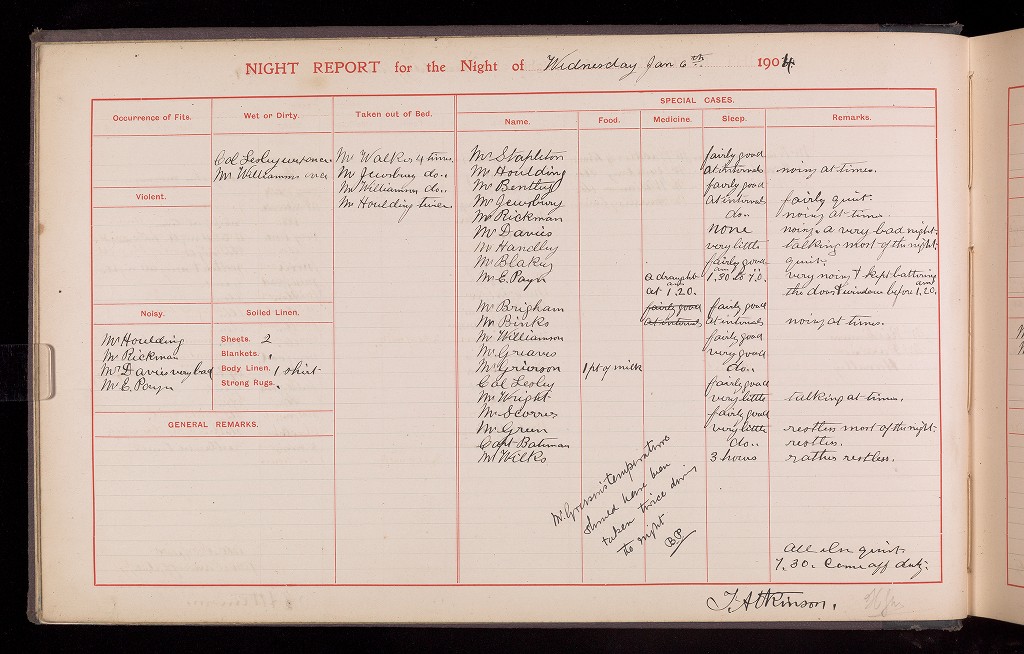 NIGHT REPORT for the Night of Wednesday Jan 6th 1904
Occurrence of Fits.
Wet or Dirty.
Taken out of Bed.
SPECIAL CASES.
Name.
Food.
Medicine.
Sleep.
Remarks.
Col Lesley wet once
Mr Williamson
Mr Walker 4 times.
Mr Jewsbury do..
Mr Williamson do..
Mr Houlding twice.
Violent.
Noisy.
Mr Houlding
Mr Rickman
Mr Davies very bad
Mr E. Payn
Soiled Linen.
Sheets. 2
Blankets. ,
Body Linen. 1 shirt
Strong Rugs. .
GENERAL REMARKS.
Mr Stapleton fairly good
Mr Houlding at intervals noisy at times.
Mr Bentley fairly good
Mr Jewsbury at intervals fairly quiet.
Mr Rickman do.. noisy at times
Mr Davies none noisy & a very bad night.
Mr Handley very little talking most of the night.
Mr Blakey fairly good quiet.
Mr E. Payn a draught am 1.30 to 7.0. very noisy & kept battering
at am 1.20. the door & window before am 1.20.
Mr Brigham fairly good fairly good
Mr Binks at intervals at intervals noisy at times.
Mr Williamson fairly good
Mr Greaves very good
Mr Grierson 1 pt of milk do..
Col Lesley fairly good
Mr Wright very little talking at times.
Mr Scorres fairly good
Mr Green very little restless most of the night.
Capt Bateman do.. restless.
Mr Wilks 3 hours rather restless.
Mr Grierson's temperature
should have been
taken twice during
the night
B.P
All else quiet
7.30. Came off duty.
T. Atkinson.